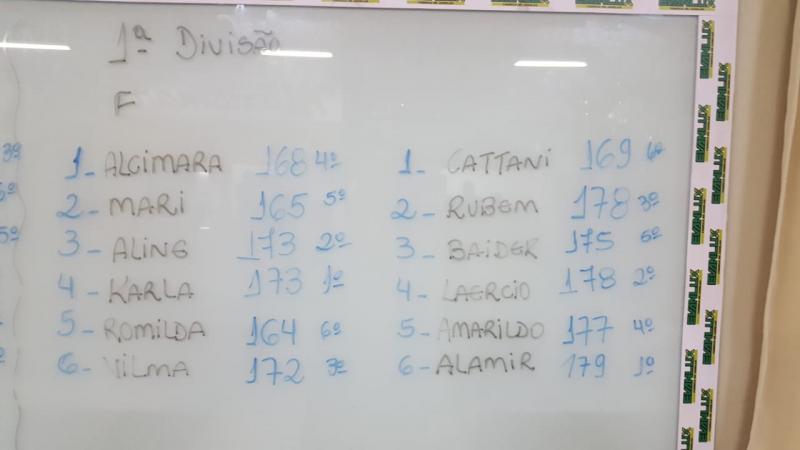 1ª Divisão
F
1- ALCIMARA 168 4º
2- MARI 165 5º
3- ALINE 173 2º
4- KARLA 173 1º
5- ROMILDA 164 6º
6- VILMA 172 3º
1- CATTANI 169 6º
2- RUBEM 178 3º
3- BAIDER 175 5º
4- LAERCIO 178 2º
5- AMARILDO 177 4º
6- ALAMIR 179 1º
3º
5º